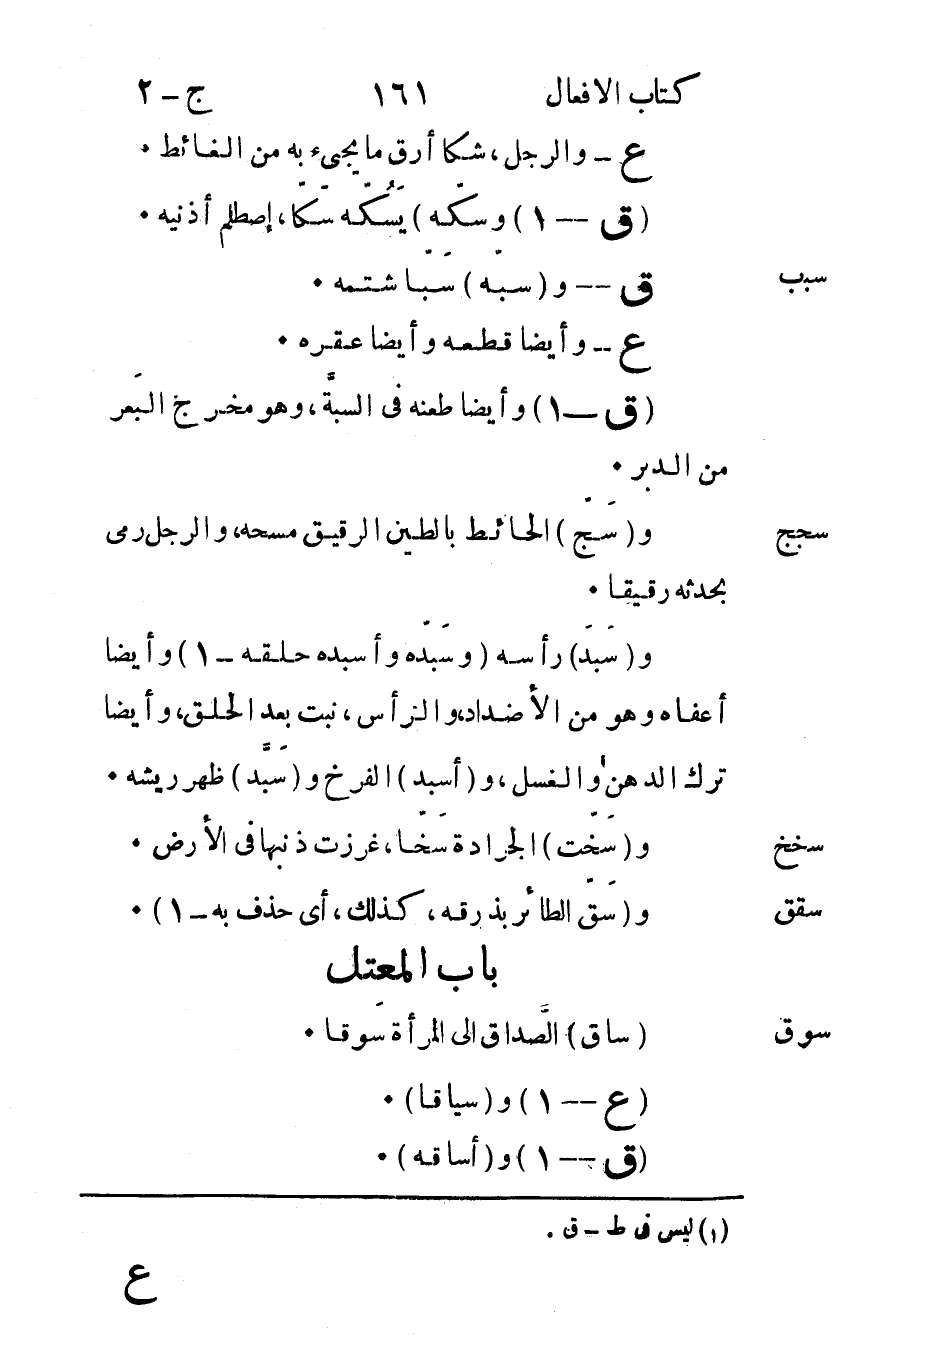 كتاب الافعال ١٦١ ج – ٢
ع – والرجل، شكا أرق ما يجيء به من الغائط •
(ق — ١) وسكّه) يَسُكّه سَكّا، إصطلم أذنيه •
سبب ق — و (سبّه) سَبّا شتمه •
ع – وأيضا قطعه وأيضا عقره •
(ق — ١) وأيضا طعنه فى السبَّة، وهو مخرج البَعر
من الدبر •
سجج و (سَجّ) الحائط بالطين الرقيق مسحه، والرجل رمى
بحدثه رقيقا •
و (سَبَد) رأسه (وسَبّده وأسبده حلقه – ١) وأيضا
أعفاه وهو من الأضداد، والرأس، نبت بعد الحلق، وأيضا
ترك الدهن والغسل، و (أسبد) الفرخ و (سَبَّد) ظهر ريشه •
سخخ و (سَخّت) الجرادة سَخّا، غرزت ذنبها فى الأرض •
سقق و (سَقّ الطائر بذرقه، كذلك، أى حذف به – ١) •
باب المعتل
سوق (ساق) الصَّداق الى المرأة سَوقا •
(ع — ١) و (سياقا) •
(ق — ١) و (أساقه) •
(١) ليس فى ط – ق .
ع